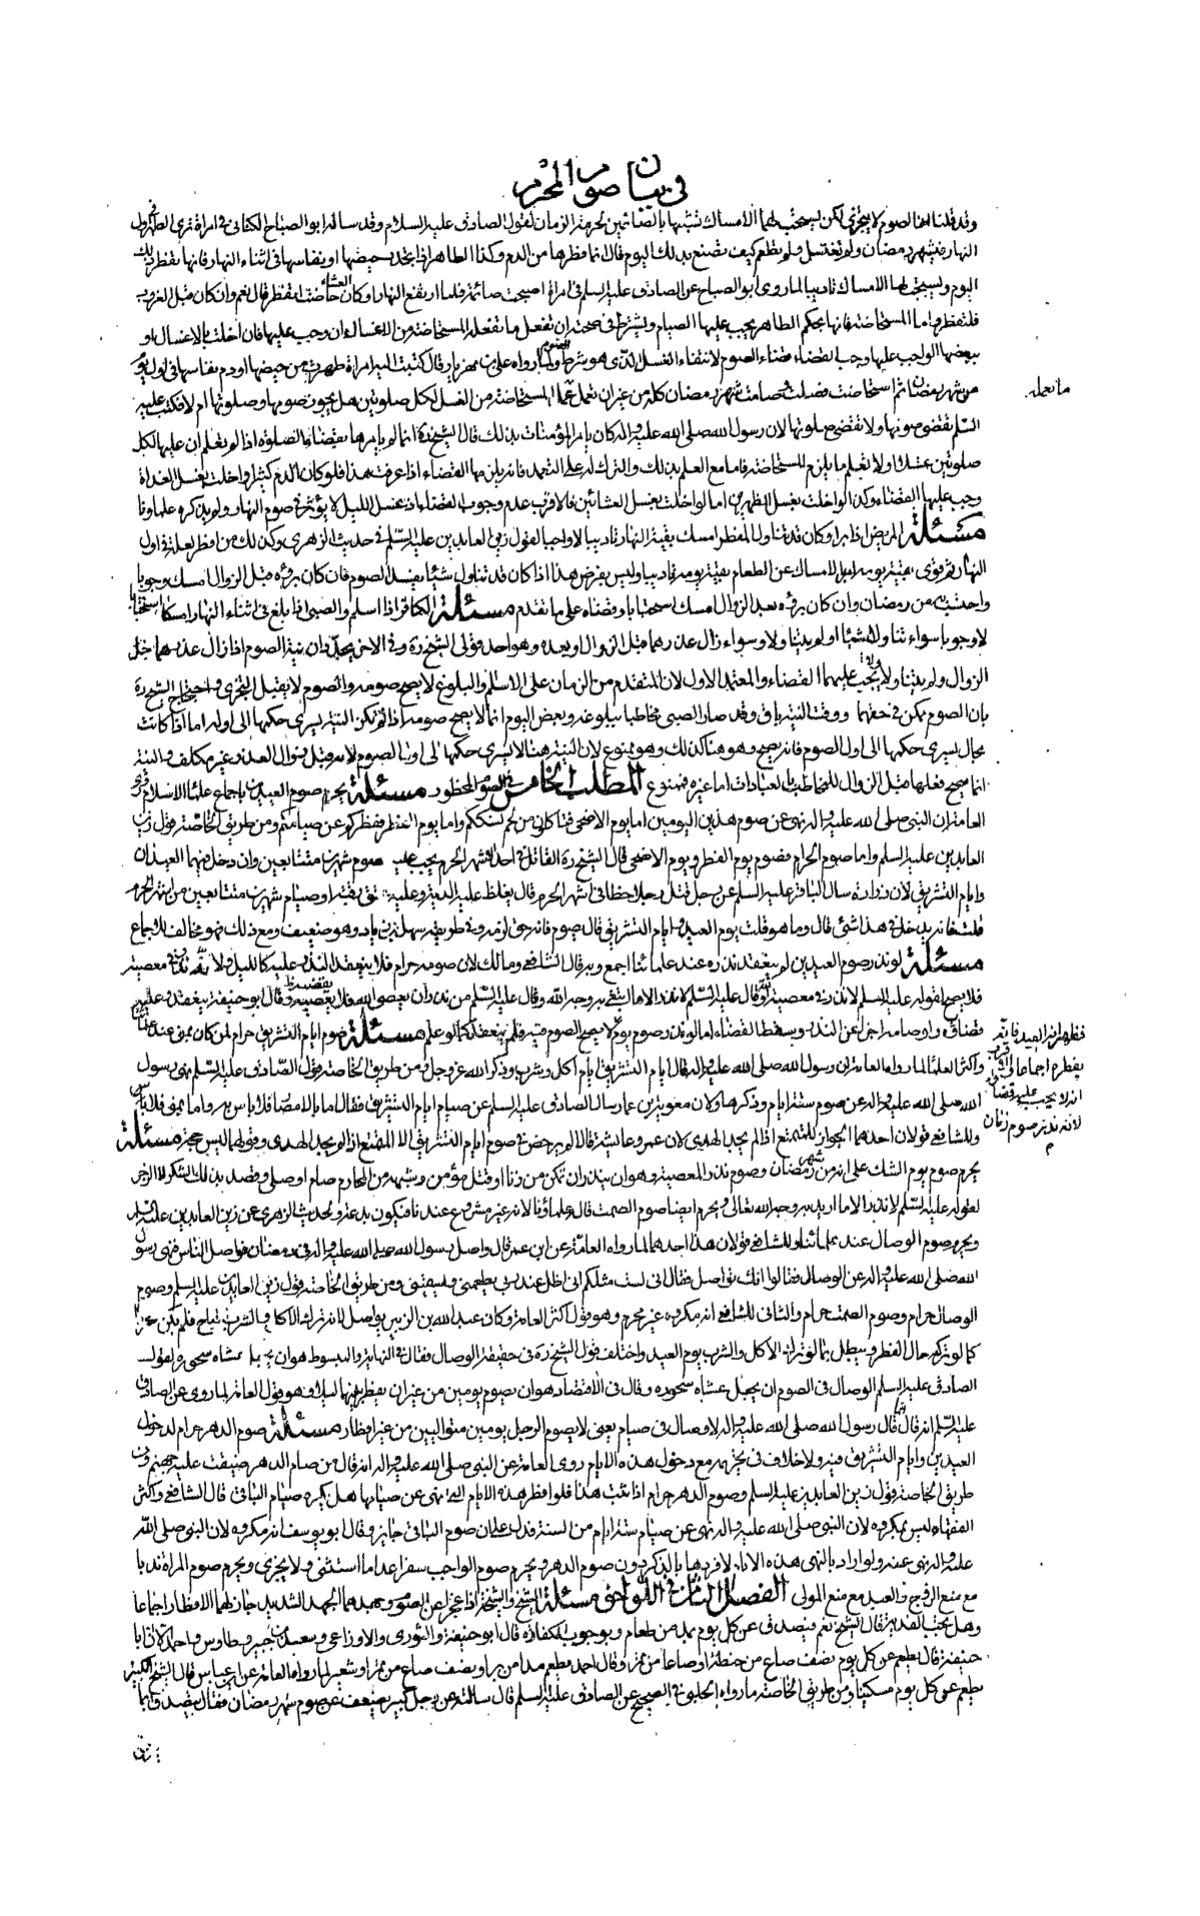 في بيان صوم المحرم
وقد قلنا ان هذا الصوم لا يجزي لكن يستحب لها الامساك تشبيها بالصائمين لحرمة الزمان لقول الصادق عليه السلام وقد ساله ابو الصباح الكناني في امراة ترى الطهر في اول
النهار في شهر رمضان ولم تغتسل ولم تطعم كيف تصنع بذلك اليوم قال انما فطرها من الدم وكذا الطاهر اذا تجدد حيضها او نفاسها في اثناء النهار فانها تفطر ذلك
اليوم ويستحب لها الامساك تاديبا لما روى ابو الصباح عن الصادق عليه السلم في امراة اصبحت صائمة فلما ارتفع النهار او كان العشاء حاضت اتفطر قال نعم وان كان قبل المغرب
فلتفطر واما المستحاضة فانها بحكم الطاهر يجب عليها الصيام ويشترط في صحته ان تفعل ما تفعله المستحاضة من الاغسال ان وجب عليها فان اخلت بالاغسال او
ببعضها الواجب عليها وجب قضاء الصوم لانتفاء الغسل الذي هو شرط الصوم ولما رواه علي بن مهزيار قال كتبت اليه امراة طهرت من حيضها او دم نفاسها في اول يوم
من شهر رمضان ثم استحاضت فصلت وصامت شهر رمضان كله من غير ان تعمل عمل المستحاضة من الغسل لكل صلوتين هل يجوز صومها وصلوتها ام لا فكتب عليه
السلم تقضي صومها ولا تقضي صلوتها لان رسول الله صلى الله عليه واله كان يامر المؤمنات بذلك قال الشيخ ره انما لم يامرها بقضاء الصلوة اذا لم تعلم ان عليها لكل
صلوتين غسلا ولا تعلم ما يلزم المستحاضة فاما مع العلم بذلك والترك له على التعمد فانه يلزمها القضاء اذا عرفت هذا فلو كان الدم كثيرا واخلت بغسل الغداة
وجب عليها القضاء وكذا لو اخلت بغسل الظهرين اما لو اخلت بغسل العشائين فالاقرب عدم وجوب القضاء اذ غسل الليل لا يؤثر في صوم النهار ولم يذكره علماؤنا
مسئلة المريض اذا برا وكان قد تناول المفطر امسك بقية النهار تاديبا لا واجبا لقول زين العابدين عليه السلم في حديث الزهري وكذلك من افطر لعلة في اول
النهار ثم قوى بقية يومه امر بالامساك عن الطعام بقية يومه تاديبا وليس بفرض هذا اذا كان قد تناول شيئا يفسد الصوم فان كان برؤه قبل الزوال امسك وجوبا
واحتسب به من رمضان وان كان برؤه بعد الزوال امسك استحبابا وقضاه على ما تقدم مسئلة الكافر اذا اسلم والصبي اذا بلغ في اثناء النهار امسكا استحبابا
لا وجوبا سواء تناولا شيئا او لم يتناولا وسواء زال عذرهما قبل الزوال او بعده وهو احد قولي الشيخ ره وفي الاخر يجددان نية الصوم اذا زال عذرهما قبل
الزوال ولم يتناولا ولا يجب عليهما القضاء والمعتمد الاول لان المتقدم من الزمان على الاسلم والبلوغ لا يصح صومه والصوم لا يقبل التجزي واحتجاج الشيخ ره
بان الصوم ممكن في حقهما ووقت النية باق وقد صار الصبي مخاطبا ببلوغه وبعض اليوم انما لا يصح صومه اذا لم تكن النية يسري حكمها الى اوله اما اذا كانت
بحال يسري حكمها الى اول الصوم فانه يصح وهو هنا كذلك وهو ممنوع لان النية هنا لا يسري حكمها الى اول الصوم لانه قبل زوال العذر غير مكلف والنية
انما يصح فعلها قبل الزوال للمخاطب بالعبادات اما غيره فممنوع المطلب الخامس في الصوم المحظور مسئلة يحرم صوم العيدين باجماع علماء الاسلام روى
العامة ان النبي صلى الله عليه واله نهى عن صوم هذين اليومين اما يوم الاضحى فتاكلون من لحم نسككم واما يوم الفطر ففطركم عن صيامكم ومن طريق الخاصة قول زين
العابدين عليه السلم واما صوم الحرام فصوم يوم الفطر ويوم الاضحى قال الشيخ ره القاتل في احد اشهر الحرم يجب عليه صوم شهرين متتابعين وان دخل فيهما العيدان
وايام التشريق لان زرارة سال الباقر عليه السلم عن رجل قتل رجلا خطا في اشهر الحرم قال يغلظ عليه الدية وعليه عتق رقبة او صيام شهرين متتابعين من اشهر الحرم
قلت فانه يدخل في هذا شئ قال وما هو قلت يوم العيد وايام التشريق قال يصوم فانه حق لزمه وفي طريقه سهل بن زياد وهو ضعيف ومع ذلك فهو مخالف للاجماع
مسئلة لو نذر صوم العيدين لم ينعقد نذره عند علمائنا اجمع وبه قال الشافعي ومالك لان صومه حرام فلا ينعقد النذر عليه كالليل ولانه نذر معصية
فلا يصح لقوله عليه السلم لا نذر في معصية الله وقال عليه السلم لا نذر الا ما ابتغي به وجه الله وقال عليه السلم من نذر ان يعصي الله فلا يعصيه وقال ابو حنيفة ينعقد وعليه
قضاؤه ولو صامه اجزا عن النذر وسقط القضاء اما لو نذر صوم يوم لا يصح الصوم فيه فلم ينعقد كما لو علم مسئلة صوم ايام التشريق حرام لمن كان بمنى عند علمائنا
واكثر العلماء لما رواه العامة ان رسول الله صلى الله عليه واله قال ايام التشريق ايام اكل وشرب وذكر الله عز وجل ومن طريق الخاصة قول الصادق عليه السلم نهى رسول
الله صلى الله عليه واله عن صوم ستة ايام وذكرها ولان معوية بن عمار سال الصادق عليه السلم عن صيام ايام التشريق فقال اما بالامصار فلا باس به واما بمنى فلا
وللشافعي قولان احدهما الجواز للمتمتع اذا لم يجد الهدي لان عمر وعايشة قالا لم يرخص في صوم ايام التشريق الا لمتمتع اذا لم يجد الهدي وقولهما ليس حجة مسئلة
يحرم صوم يوم الشك على انه من شهر رمضان وصوم نذر المعصية وهو ان ينذر ان تمكن من زنا او قتل مؤمن وشبهه من المحارم صام او صلى وقصد بذلك الشكر لا الزجر
لقوله عليه السلم لا نذر الا ما اريد به وجه الله تعالى ويحرم ايضا صوم الصمت قاله علماؤنا لانه غير مشروع عندنا فيكون بدعة ولحديث الزهري عن زين العابدين عليه السلم
ويحرم صوم الوصال عند علمائنا وللشافعي قولان هذا احدهما لما رواه العامة عن ابن عمر قال واصل رسول الله صلى الله عليه واله في رمضان فواصل الناس فنهى رسول
الله صلى الله عليه واله عن الوصال فقالوا انك تواصل فقال اني لست مثلكم اني اظل عند ربي يطعمني ويسقيني ومن طريق الخاصة قول زين العابدين عليه السلم وصوم
الوصال حرام وصوم الصمت حرام والثاني للشافعي انه مكروه غير محرم وهو قول اكثر العامة وكان عبد الله بن الزبير يواصل لانه ترك الاكل والشرب المباح فلم يكن محرما
كما لو تركه حال الفطر ويبطل بما لو ترك الاكل والشرب يوم العيد واختلف قول الشيخ ره في حقيقة الوصال فقال في النهاية والمبسوط هو ان يجعل عشاه سحوره لقول
الصادق عليه السلم الوصال في الصوم ان يجعل عشاه سحوره وقال في الاقتصاد هو ان يصوم يومين من غير ان يفطر بينهما ليلا وهو قول العامة لما روي عن الصادق
عليه السلم انه قال انما قال رسول الله صلى الله عليه واله لا وصال في صيام يعني لا يصوم الرجل يومين متواليين من غير افطار مسئلة صوم الدهر حرام لدخول
العيدين وايام التشريق فيه ولا خلاف في تحريمه مع دخول هذه الايام روى العامة عن النبي صلى الله عليه واله انه قال من صام الدهر ضيقت عليه جهنم ومن
طريق الخاصة قول زين العابدين عليه السلم وصوم الدهر حرام اذا ثبت هذا فلو افطر هذه الايام التي نهي عن صيامها هل يكره صيام الباقي قال الشافعي واكثر
الفقهاء ليس بمكروه لان النبي صلى الله عليه واله نهى عن صيام ستة ايام من السنة فدل على ان صوم الباقي جايز وقال ابو يوسف انه مكروه لان النبي صلى الله
عليه واله نهى عنه ولو اراد بالنهي هذه الايام لافردها بالذكر دون صوم الدهر ويحرم صوم الواجب سفرا عدا ما استثني ولا يجزي ويحرم صوم المراة ندبا
مع منع الزوج والعبد مع منع المولى الفصل الثاني في اللواحق مسئلة الشيخ والشيخة اذا عجزا عن الصوم وجهدهما الجهد الشديد جاز لهما الافطار اجماعا
وهل تجب الفدية قال الشيخ نعم فيتصدق عن كل يوم بمد من طعام وبوجوب الكفارة قال ابو حنيفة والثوري والاوزاعي وسعيد بن جبير وطاوس واحمد الا ان ابا
حنيفة قال يطعم عن كل يوم نصف صاع من حنطة او صاعا من تمر وقال احمد يطعم مدا من بر او نصف صاع من تمر او شعير لما رواه العامة عن ابن عباس قال الشيخ الكبير
يطعم عن كل يوم مسكينا ومن طريق الخاصة ما رواه الحلبي في الصحيح عن الصادق عليه السلم قال سالته عن رجل كبير يضعف عن صوم شهر رمضان فقال يتصدق بما
ما تعمله
فظهر انه العيد فانه
يفطره اجماعا والاقرب
انه لا يجب عليه قضاؤه
لانه نذر صوم زمان